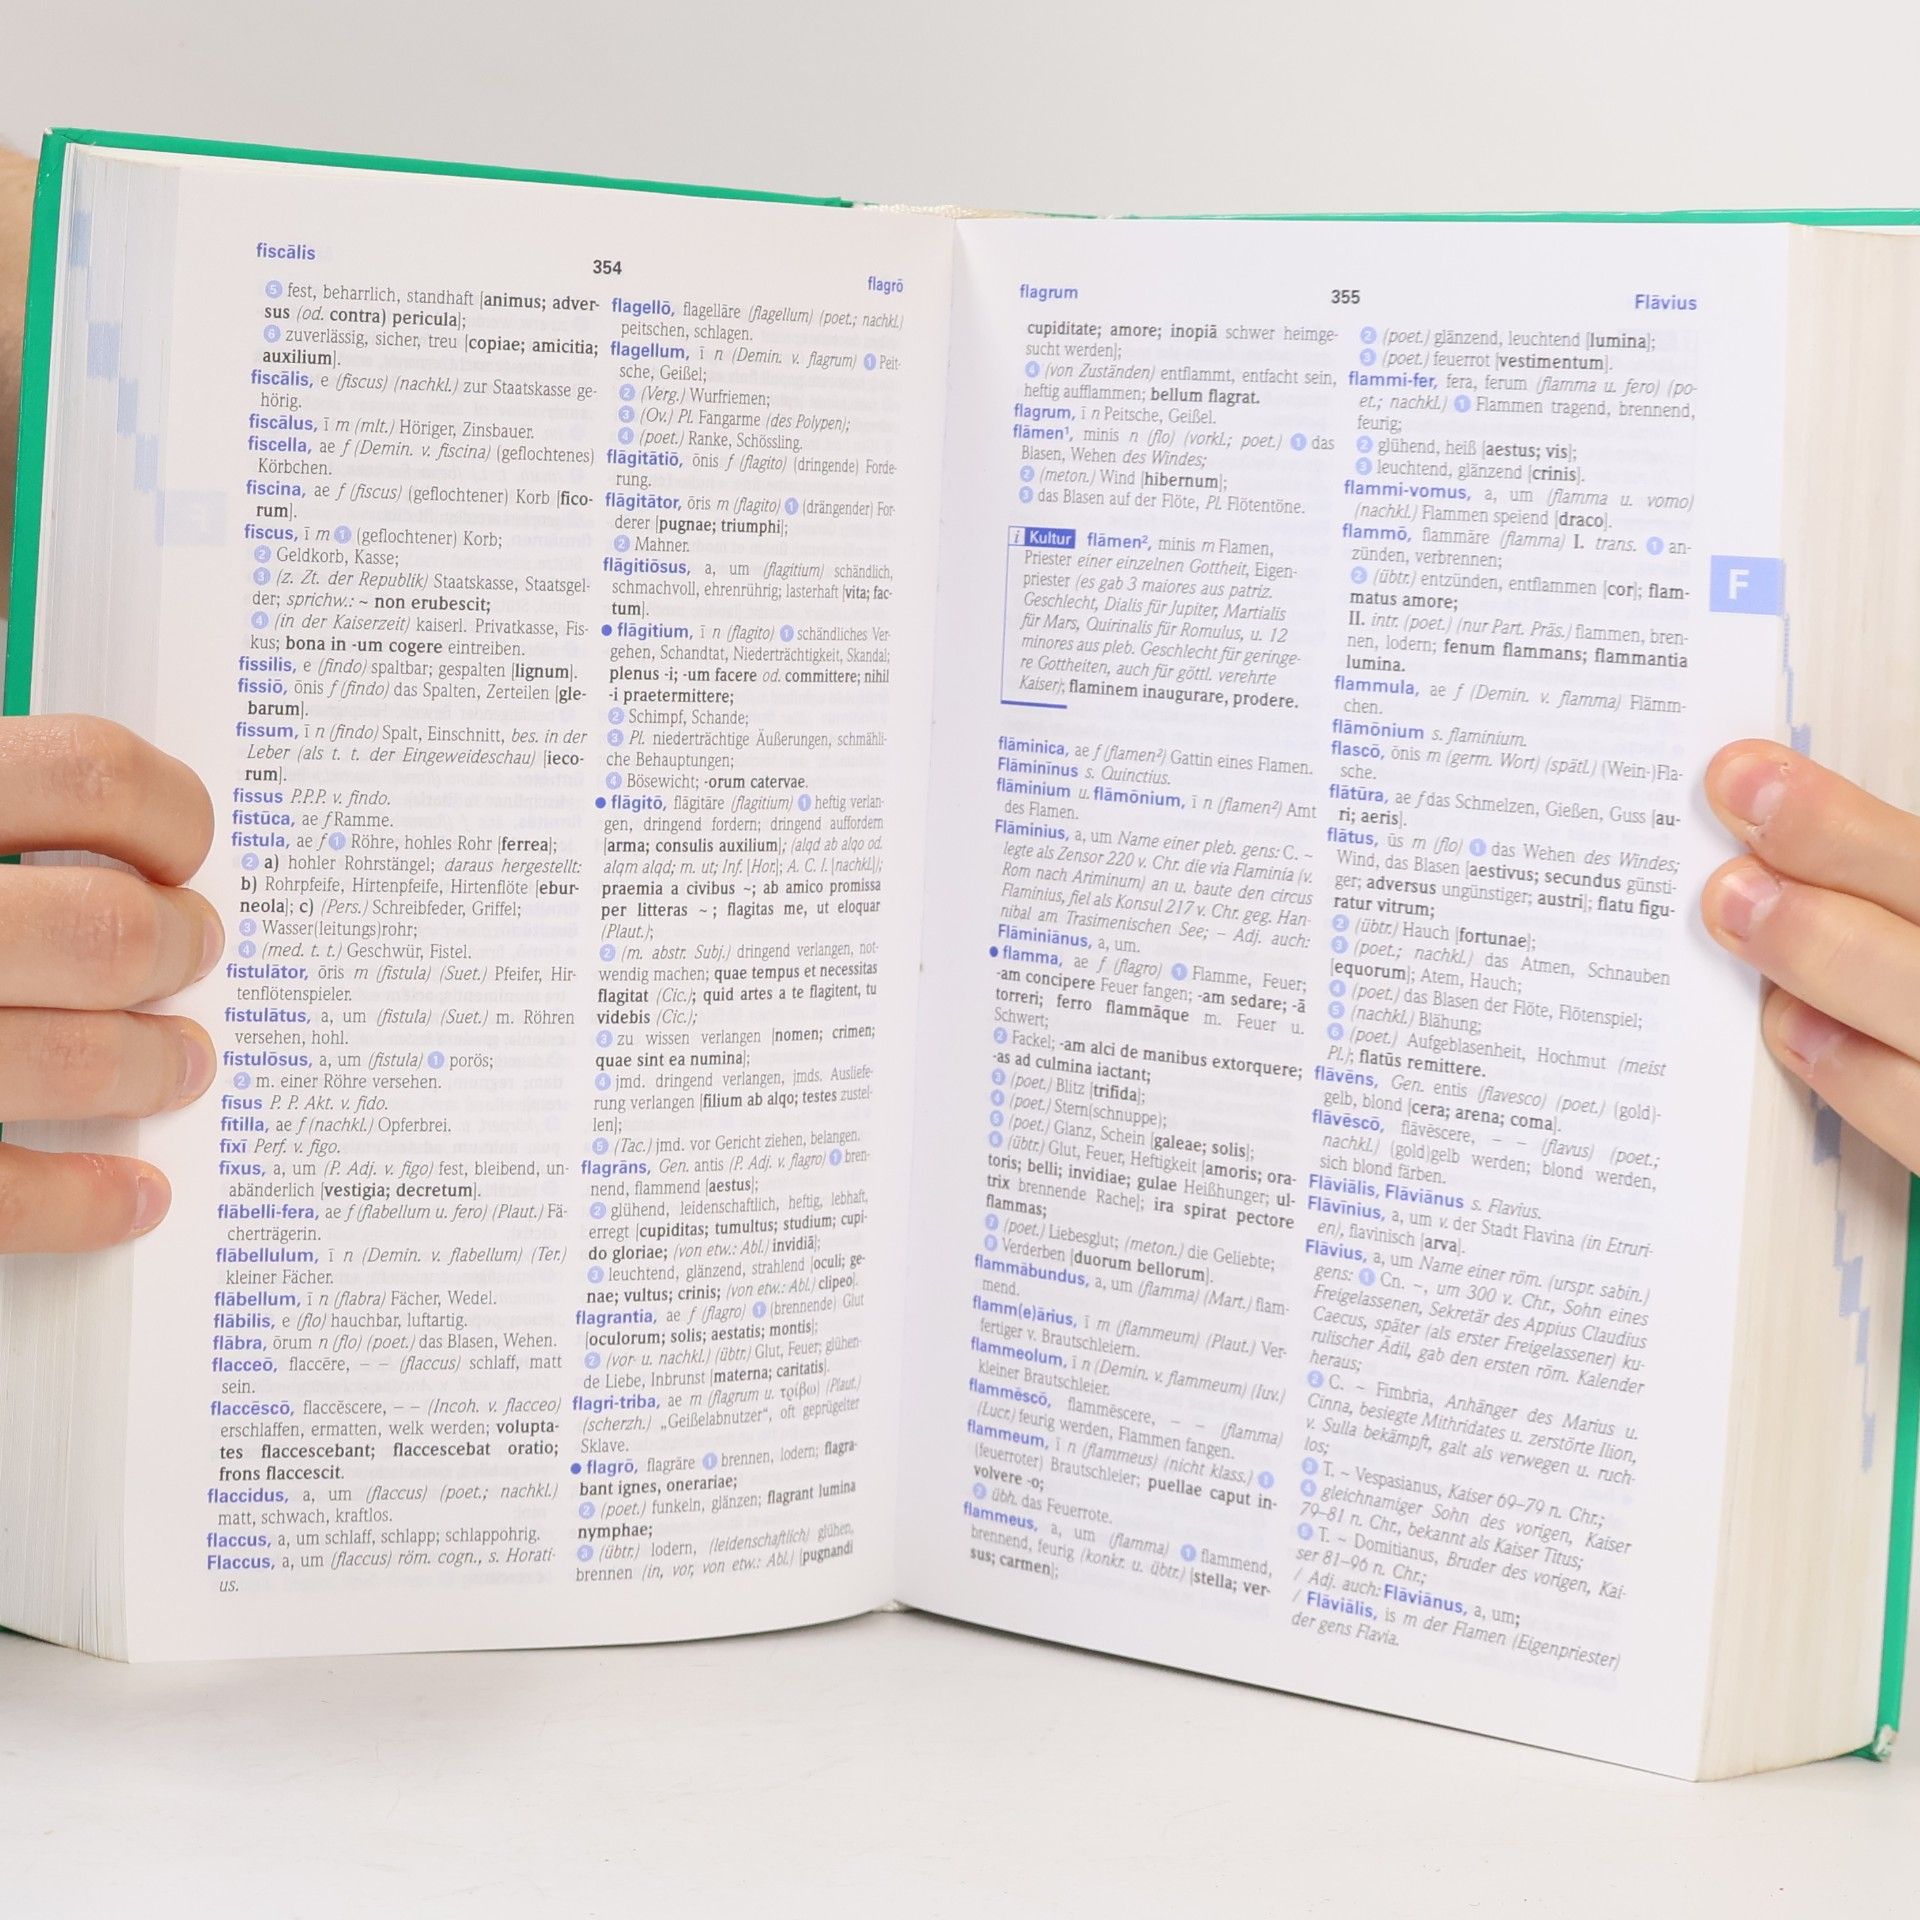 fiscālis
354
flagrō
❺ fest, beharrlich, standhaft [animus; adver-
sus (od. contra) pericula];
❻ zuverlässig, sicher, treu [copiae; amicitia;
auxilium].
fiscālis, e (fiscus) (nachkl.) zur Staatskasse ge-
hörig.
fiscālus, ī m (mlt.) Höriger, Zinsbauer.
fiscella, ae f (Demin. v. fiscina) (geflochtenes)
Körbchen.
fiscina, ae f (fiscus) (geflochtener) Korb [fico-
rum].
fiscus, ī m ❶ (geflochtener) Korb;
❷ Geldkorb, Kasse;
❸ (z. Zt. der Republik) Staatskasse, Staatsgel-
der; sprichw.: ~ non erubescit;
❹ (in der Kaiserzeit) kaiserl. Privatkasse, Fis-
kus; bona in -um cogere eintreiben.
fissilis, e (findo) spaltbar; gespalten [lignum].
fissiō, ōnis f (findo) das Spalten, Zerteilen [gle-
barum].
fissum, ī n (findo) Spalt, Einschnitt, bes. in der
Leber (als t. t. der Eingeweideschau) [ieco-
rum].
fissus P.P.P. v. findo.
fistūca, ae f Ramme.
fistula, ae f ❶ Röhre, hohles Rohr [ferrea];
❷ a) hohler Rohrstängel; daraus hergestellt:
b) Rohrpfeife, Hirtenpfeife, Hirtenflöte [ebur-
neola]; c) (Pers.) Schreibfeder, Griffel;
❸ Wasser(leitungs)rohr;
❹ (med. t. t.) Geschwür, Fistel.
fistulātor, ōris m (fistula) (Suet.) Pfeifer, Hir-
tenflötenspieler.
fistulātus, a, um (fistula) (Suet.) m. Röhren
versehen, hohl.
fistulōsus, a, um (fistula) ❶ porös;
❷ m. einer Röhre versehen.
fīsus P. P. Akt. v. fido.
fītilla, ae f (nachkl.) Opferbrei.
fīxī Perf. v. figo.
fīxus, a, um (P. Adj. v. figo) fest, bleibend, un-
abänderlich [vestigia; decretum].
flābelli-fera, ae f (flabellum u. fero) (Plaut.) Fä-
cherträgerin.
flābellulum, ī n (Demin. v. flabellum) (Ter.)
kleiner Fächer.
flābellum, ī n (flabra) Fächer, Wedel.
flābilis, e (flo) hauchbar, luftartig.
flābra, ōrum n (flo) (poet.) das Blasen, Wehen.
flacceō, flaccēre, – – (flaccus) schlaff, matt
sein.
flaccēscō, flaccēscere, – – (Incoh. v. flacceo)
erschlaffen, ermatten, welk werden; volupta-
tes flaccescebant; flaccescebat oratio;
frons flaccescit.
flaccidus, a, um (flaccus) (poet.; nachkl.)
matt, schwach, kraftlos.
flaccus, a, um schlaff, schlapp; schlappohrig.
Flaccus, a, um (flaccus) röm. cogn., s. Horati-
us.
flagellō, flagellāre (flagellum) (poet.; nachkl.)
peitschen, schlagen.
flagellum, ī n (Demin. v. flagrum) ❶ Peit-
sche, Geißel;
❷ (Verg.) Wurfriemen;
❸ (Ov.) Pl. Fangarme (des Polypen);
❹ (poet.) Ranke, Schössling.
flāgitātiō, ōnis f (flagito) (dringende) Forde-
rung.
flāgitātor, ōris m (flagito) ❶ (drängender) For-
derer [pugnae; triumphi];
❷ Mahner.
flāgitiōsus, a, um (flagitium) schändlich,
schmachvoll, ehrenrührig; lasterhaft [vita; fac-
tum].
● flāgitium, ī n (flagito) ❶ schändliches Ver-
gehen, Schandtat, Niederträchtigkeit, Skandal;
plenus -i; -um facere od. committere; nihil
-i praetermittere;
❷ Schimpf, Schande;
❸ Pl. niederträchtige Äußerungen, schmähli-
che Behauptungen;
❹ Bösewicht; -orum catervae.
● flāgitō, flāgitāre (flagitium) ❶ heftig verlan-
gen, dringend fordern; dringend auffordern
[arma; consulis auxilium]; (alqd ab alqo od.
alqm alqd; m. ut; Inf. [Hor.]; A. C. I. [nachkl.]);
praemia a civibus ~; ab amico promissa
per litteras ~ ; flagitas me, ut eloquar
(Plaut.);
❷ (m. abstr. Subj.) dringend verlangen, not-
wendig machen; quae tempus et necessitas
flagitat (Cic.); quid artes a te flagitent, tu
videbis (Cic.);
❸ zu wissen verlangen [nomen; crimen;
quae sint ea numina];
❹ jmd. dringend verlangen, jmds. Ausliefe-
rung verlangen [filium ab alqo; testes zustel-
len];
❺ (Tac.) jmd. vor Gericht ziehen, belangen.
flagrāns, Gen. antis (P. Adj. v. flagro) ❶ bren-
nend, flammend [aestus];
❷ glühend, leidenschaftlich, heftig, lebhaft,
erregt [cupiditas; tumultus; studium; cupi-
do gloriae; (von etw.: Abl.) invidiā];
❸ leuchtend, glänzend, strahlend [oculi; ge-
nae; vultus; crinis; (von etw.: Abl.) clipeo].
flagrantia, ae f (flagro) ❶ (brennende) Glut
[oculorum; solis; aestatis; montis];
❷ (vor- u. nachkl.) (übtr.) Glut, Feuer; glühen-
de Liebe, Inbrunst [materna; caritatis].
flagri-triba, ae m (flagrum u. τρίβω) (Plaut.)
(scherzh.) „Geißelabnutzer“, oft geprügelter
Sklave.
● flagrō, flagrāre ❶ brennen, lodern; flagra-
bant ignes, onerariae;
❷ (poet.) funkeln, glänzen; flagrant lumina
nymphae;
❸ (übtr.) lodern, (leidenschaftlich) glühen,
brennen (in, vor, von etw.: Abl.) [pugnandi
flagrum
355
Flāvius
cupiditate; amore; inopiā schwer heimge-
sucht werden];
❹ (von Zuständen) entflammt, entfacht sein,
heftig aufflammen; bellum flagrat.
flagrum, ī n Peitsche, Geißel.
flāmen¹, minis n (flo) (vorkl.; poet.) ❶ das
Blasen, Wehen des Windes;
❷ (meton.) Wind [hibernum];
❸ das Blasen auf der Flöte, Pl. Flötentöne.
i Kultur flāmen², minis m Flamen,
Priester einer einzelnen Gottheit, Eigen-
priester (es gab 3 maiores aus patriz.
Geschlecht, Dialis für Jupiter, Martialis
für Mars, Quirinalis für Romulus, u. 12
minores aus pleb. Geschlecht für geringe-
re Gottheiten, auch für göttl. verehrte
Kaiser); flaminem inaugurare, prodere.
flāminica, ae f (flamen²) Gattin eines Flamen.
Flāminīnus s. Quinctius.
flāminium u. flāmōnium, ī n (flamen²) Amt
des Flamen.
Flāminius, a, um Name einer pleb. gens: C. ~
legte als Zensor 220 v. Chr. die via Flaminia (v.
Rom nach Ariminum) an u. baute den circus
Flaminius, fiel als Konsul 217 v. Chr. geg. Han-
nibal am Trasimenischen See; – Adj. auch:
Flāminiānus, a, um.
● flamma, ae f (flagro) ❶ Flamme, Feuer;
-am concipere Feuer fangen; -am sedare; -ā
torreri; ferro flammāque m. Feuer u.
Schwert;
❷ Fackel; -am alci de manibus extorquere;
-as ad culmina iactant;
❸ (poet.) Blitz [trifida];
❹ (poet.) Stern(schnuppe);
❺ (poet.) Glanz, Schein [galeae; solis];
❻ (übtr.) Glut, Feuer, Heftigkeit [amoris; ora-
toris; belli; invidiae; gulae Heißhunger; ul-
trix brennende Rache]; ira spirat pectore
flammas;
❼ (poet.) Liebesglut; (meton.) die Geliebte;
❽ Verderben [duorum bellorum].
flammābundus, a, um (flamma) (Mart.) flam-
mend.
flamm(e)ārius, ī m (flammeum) (Plaut.) Ver-
fertiger v. Brautschleiern.
flammeolum, ī n (Demin. v. flammeum) (Iuv.)
kleiner Brautschleier.
flammēscō, flammēscere, – – (flamma)
(Lucr.) feurig werden, Flammen fangen.
flammeum, ī n (flammeus) (nicht klass.) ❶
(feuerroter) Brautschleier; puellae caput in-
volvere -o;
❷ übh. das Feuerrote.
flammeus, a, um (flamma) ❶ flammend,
brennend, feurig (konkr. u. übtr.) [stella; ver-
sus; carmen];
❷ (poet.) glänzend, leuchtend [lumina];
❸ (poet.) feuerrot [vestimentum].
flammi-fer, fera, ferum (flamma u. fero) (po-
et.; nachkl.) ❶ Flammen tragend, brennend,
feurig;
❷ glühend, heiß [aestus; vis];
❸ leuchtend, glänzend [crinis].
flammi-vomus, a, um (flamma u. vomo)
(nachkl.) Flammen speiend [draco].
flammō, flammāre (flamma) I. trans. ❶ an-
zünden, verbrennen;
❷ (übtr.) entzünden, entflammen [cor]; flam-
matus amore;
II. intr. (poet.) (nur Part. Präs.) flammen, bren-
nen, lodern; fenum flammans; flammantia
lumina.
flammula, ae f (Demin. v. flamma) Flämm-
chen.
flāmōnium s. flaminium.
flascō, ōnis m (germ. Wort) (spätl.) (Wein-)Fla-
sche.
flātūra, ae f das Schmelzen, Gießen, Guss [au-
ri; aeris].
flātus, ūs m (flo) ❶ das Wehen des Windes;
Wind, das Blasen [aestivus; secundus günsti-
ger; adversus ungünstiger; austri]; flatu figu-
ratur vitrum;
❷ (übtr.) Hauch [fortunae];
❸ (poet.; nachkl.) das Atmen, Schnauben
[equorum]; Atem, Hauch;
❹ (poet.) das Blasen der Flöte, Flötenspiel;
❺ (nachkl.) Blähung;
❻ (poet.) Aufgeblasenheit, Hochmut (meist
Pl.); flatūs remittere.
flāvēns, Gen. entis (flavesco) (poet.) (gold)-
gelb, blond [cera; arena; coma].
flāvēscō, flāvēscere, – – (flavus) (poet.;
nachkl.) (gold)gelb werden; blond werden,
sich blond färben.
Flāviālis, Flāviānus s. Flavius.
Flāvīnius, a, um v. der Stadt Flavina (in Etruri-
en), flavinisch [arva].
Flāvius, a, um Name einer röm. (urspr. sabin.)
gens: ❶ Cn. ~, um 300 v. Chr., Sohn eines
Freigelassenen, Sekretär des Appius Claudius
Caecus, später (als erster Freigelassener) ku-
rulischer Ädil, gab den ersten röm. Kalender
heraus;
❷ C. ~ Fimbria, Anhänger des Marius u.
Cinna, besiegte Mithridates u. zerstörte Ilion,
v. Sulla bekämpft, galt als verwegen u. ruch-
los;
❸ T. ~ Vespasianus, Kaiser 69–79 n. Chr.;
❹ gleichnamiger Sohn des vorigen, Kaiser
79–81 n. Chr., bekannt als Kaiser Titus;
❺ T. ~ Domitianus, Bruder des vorigen, Kai-
ser 81–96 n. Chr.;
/ Adj. auch: Flāviānus, a, um;
/ Flāviālis, is m der Flamen (Eigenpriester)
der gens Flavia.
F